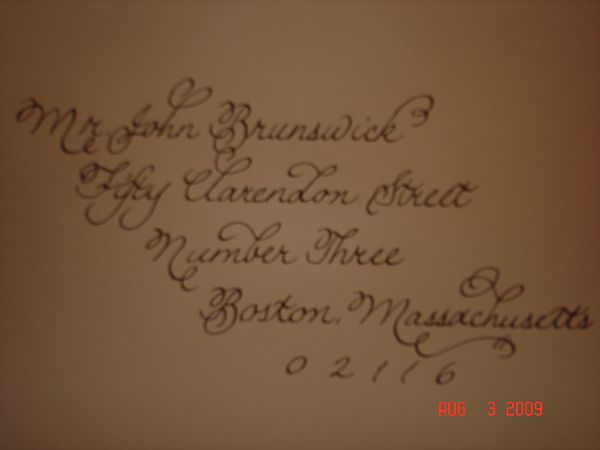 Mr. John Brunswick
Fifty Clarendon Street
Number Three
Boston, Massachusetts
02116
AUG 3 2009